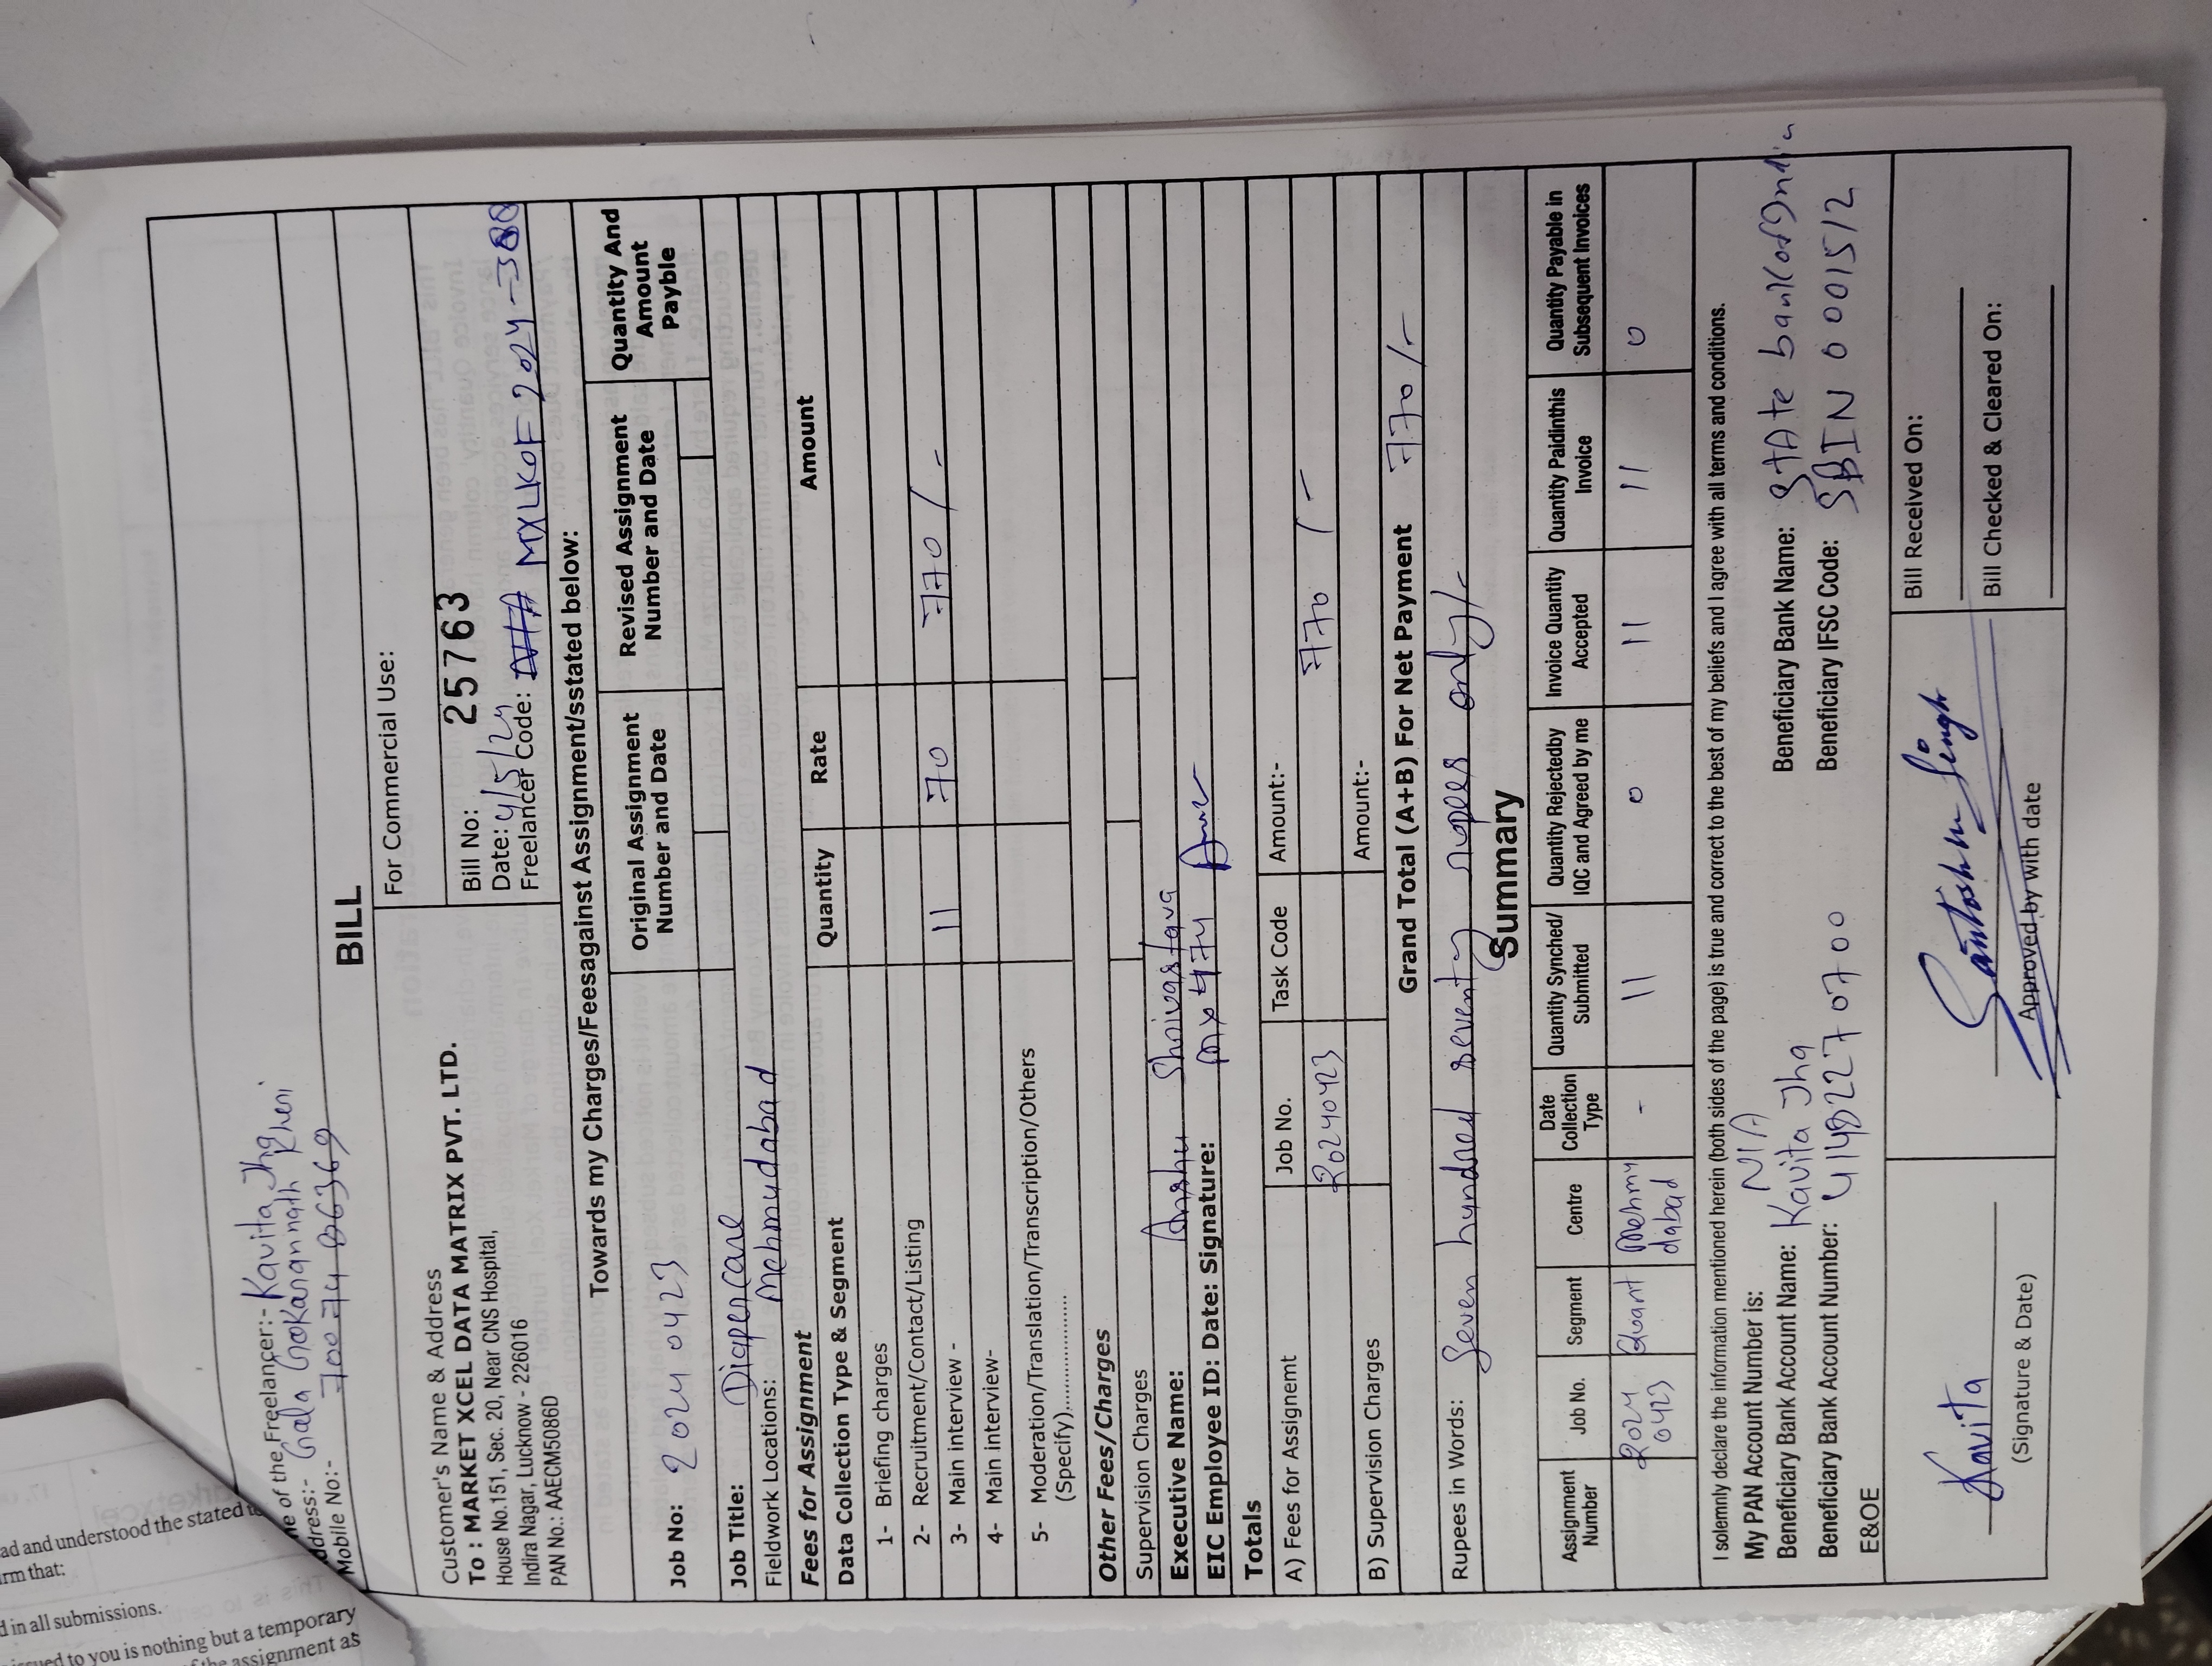 ad and understood the stated
rm that:
d in all submissions.
issued to you is nothing but a temporary
of the assignment as
me of the Freelancer:- Kavita Jha
ddress:- Gala Gokarannath Kheri
Mobile No:- 700 74 86369
BILL
Customer's Name & Address
To : MARKET XCEL DATA MATRIX PVT. LTD.
House No.151, Sec. 20, Near CNS Hospital,
Indira Nagar, Lucknow - 226016
PAN No.: AAECM5086D
For Commercial Use:
Bill No: 25763
Date: 4/5/24
Freelancer Code: MXLKOF 2024-388
Towards my Charges/Feesagainst Assignment/sstated below:
Job No: 2024 0423
Original Assignment Number and Date
Revised Assignment Number and Date
Quantity And Amount Payble
Job Title: Diapercare
Fieldwork Locations: Mehmudabad
Fees for Assignment
Data Collection Type & Segment Quantity Rate Amount
1- Briefing charges
2- Recruitment/Contact/Listing
3- Main interview - 11 70 770/-
4- Main interview-
5- Moderation/Translation/Transcription/Others
(Specify)........................
Other Fees/Charges
Supervision Charges
Executive Name: Anshu Shrivastava
EIC Employee ID: Date: Signature: MX 474
Totals
A) Fees for Assignemt Job No. Task Code Amount:-
20240423 770/-
B) Supervision Charges Amount:-
Grand Total (A+B) For Net Payment 770/-
Rupees in Words: Seven hundred seventy rupees only/-
Summary
Assignment Number Job No. Segment Centre Date Collection Type Quantity Synched/ Submitted Quantity Rejectedby IQC and Agreed by me Invoice Quantity Accepted Quantity Paidinthis Invoice Quantity Payable in Subsequent Invoices
2024 0423 Quant Mehmu dabad - 11 0 11 11 0
I solemnly declare the information mentioned herein (both sides of the page) is true and correct to the best of my beliefs and I agree with all terms and conditions.
My PAN Account Number is: N/A
Beneficiary Bank Account Name: Kavita Jha Beneficiary Bank Name: STAte bank of India
Beneficiary Bank Account Number: Beneficiary IFSC Code: SBIN 0001512
E&OE
Kavita
(Signature & Date)
Santosh Singh
Approved by with date
Bill Received On:
Bill Checked & Cleared On: